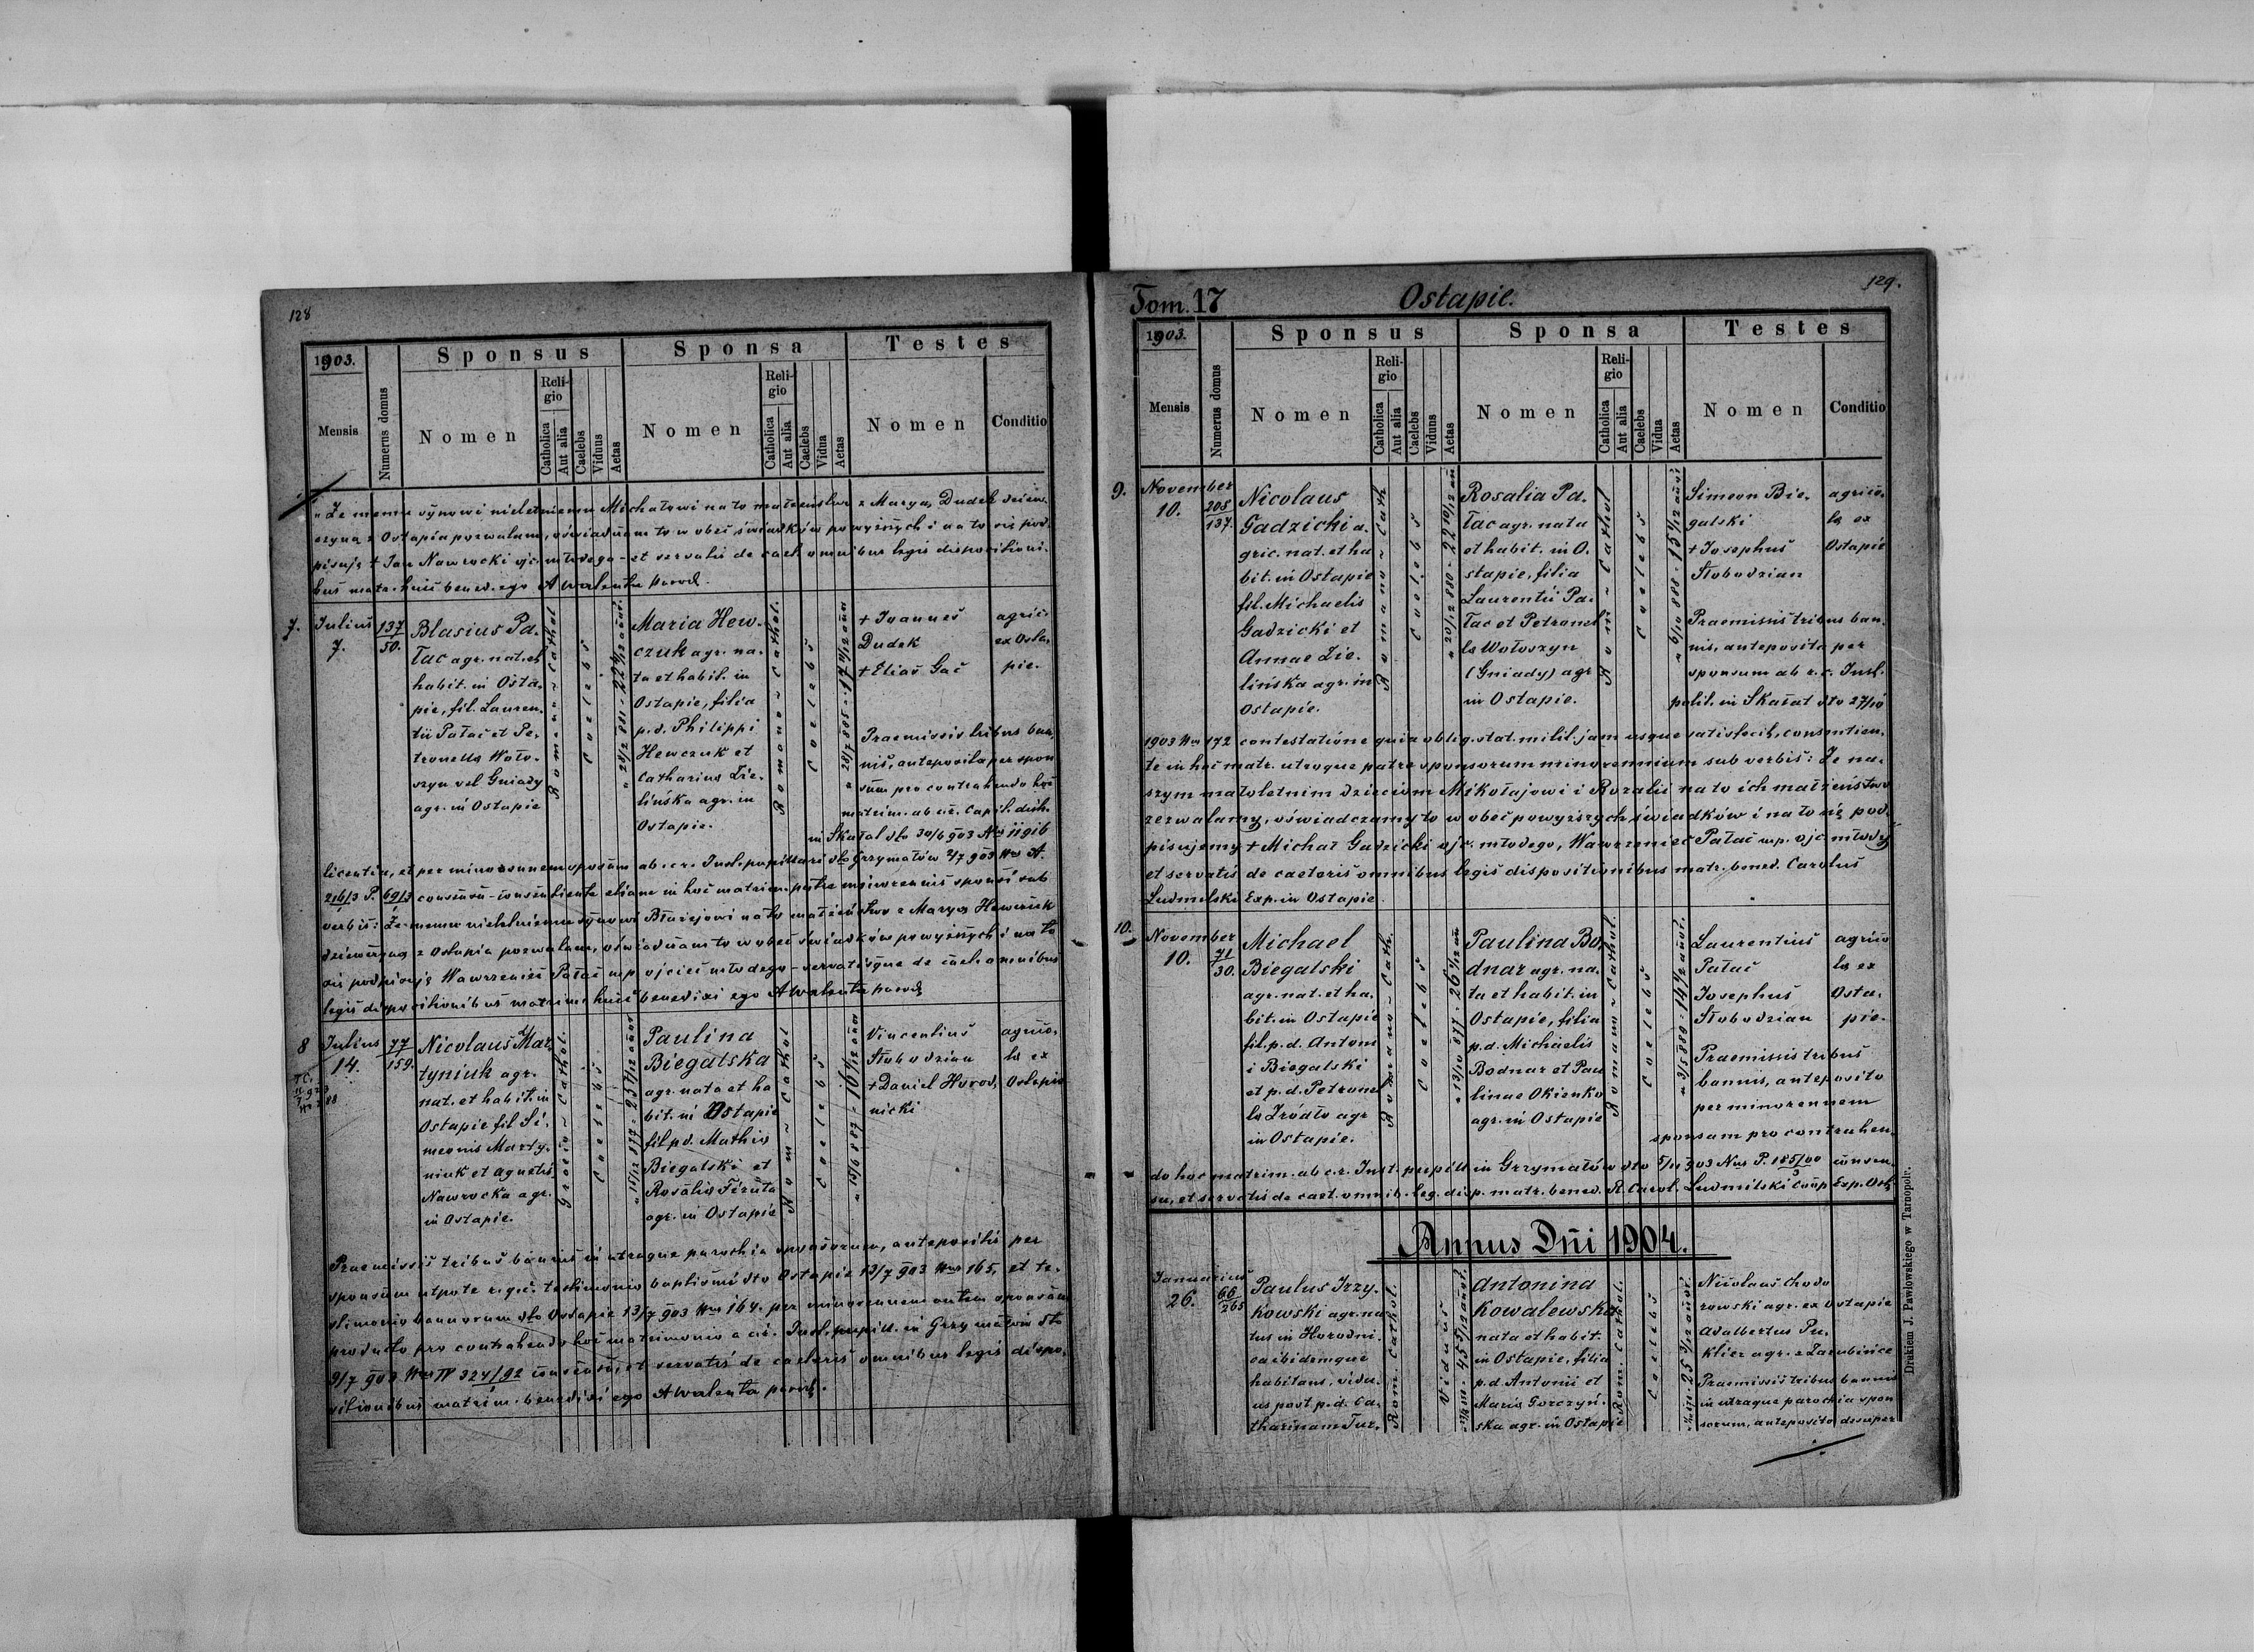 128
1903.
Mensis
Numerus domus
Sponsus
Sponsa
Testes
Nomen
Religio
Catholica
Aut alia
Caelebs
Viduus
Aetas
Nomen
Religio
Catholica
Aut alia
Caelebs
Vidua
Aetas
Nomen
Conditio
"Że memu synowi nieletniemu Michałowi na to małżeństwo z Maryą Dudek dziew-
czyną z Ostapia pozwalam, oświadczam to w obec świadków powyższych i na to się pod-
pisuję + Jan Nawrocki ojc. młodego - et servatis de caet. omnibus legis dispositioni-
bus matr. huic bened. ego A Walenta paroch.
7.
Julius
7.
137
50.
Blasius Pa-
łac agr. nat. et
habit. in Osta-
pie, fil. Lauren-
tii Pałac et Pe-
tronella Woło-
szyn vel Gniady
agr. in Ostapie
Romano-Cathol
Coelebs
Maria Hew-
czuk agr. na-
ta et habit. in
Ostapie, filia
p.d. Philippi
Hewczuk et
Catharina Zie-
lińska agr. in
Ostapie.
Romano-Cathol.
Coelebs
+ Ioannes
Dudek
+ Elias Gac
agric.
ex Osta-
pie.
Praemissis tribus ban-
nis, anteposita per spon-
sum pro contrahendo hoc
matrim. ab
in Skałat dto 30/6 903
licentia, et per minorennem sponsum ab c.r. Inst. pupillari dto Grzymałów 2/7 903 Nus A.
216/3 P. 69/3 consensu - consentiente etiam in hoc matrim. patre minorennis sponsi sub
verbis: Że memu nieletniemu synowi Błażejowi na to małżeństwo z Maryą Hewczuk
dziewczyną z Ostapia pozwalam, oświadczam to w obec świadków powyższych i na to
się podpisuję Wawrzeniec Pałac mp ojciec młodego - servatisque de caet. omnibus
legis dispositionibus matrim. huic benedixi ego A Walenta paroch
8
Julius
14.
77
159.
Nicolaus Mar-
tyniuk agr.
nat. et habit. in
Ostapie fil. Si-
meonis Marty-
niuk et Agnetis
Nawrocka agr.
in Ostapie.
Graeco-Cathol.
Coelebs
15/12 877 - 25 7/12 annor
Paulina
Biegalska
agr. nata et ha
bit. in Ostapie
fil. p.d. Mathia
Biegalski et
Rosalia
agr. in Ostapie
Rom - Cathol
Coelebs
Vincentius
Słobodzian
+ Daniel Horod-
nicki
agrico-
la ex
Ostapie
Praemissis tribus bannis in utraque parochia sponsorum, antepositis per
sponsum utpote r. gr.c. testimonio baptismi dto Ostapie 13/7 903 Nus 165, et te-
stimonio bannorum dto Ostapie 13/7 903 Nus 164. per minorennem autem sponsam
producto pro contrahendo hoc matrimonio a c.r. Inst. pupill. in Grzymałów dto
9/7 903 Nus IV 324/92 consensu, et servatis de caeteris omnibus legis dispo-
sitionibus matrim. benedixi ego A Walenta paroch.
Tom. 17
Ostapie.
129.
1903.
Mensis
Numerus domus
Sponsus
Sponsa
Testes
Nomen
Religio
Catholica
Aut alia
Caelebs
Viduus
Aetas
Nomen
Religio
Catholica
Aut alia
Caelebs
Vidua
Aetas
Nomen
Conditio
9.
November
10.
205
137.
Nicolaus
Gadzicki a-
gric. nat. et ha
bit. in Ostapie
fil. Michaelis
Gadzicki et
Annae Zie-
lińska agr. in
Ostapie.
Romano-Cath
Coelebs
20/12 880 - 22 10/12 an
Rosalia Pa-
łac agr. nata
et habit. in O-
stapie, filia
Laurentii Pa-
łac et Petronel
la Wołoszyn
(Gniady) agr
in Ostapie.
Rom - Cathol
Coelebs
Simeon Bie-
galski
+ Josephus
Słobodzian
agrico-
la ex
Ostapie
Praemissis tribus ban-
nis, anteposita per
sponsum ab c.r. Inst.
polit. in Skałat dto 27/10
1903 Nus 172 contestatione quia oblig. stat. milit. jam usque satisfecit, consentien-
te in hoc matr. utroque patre sponsorum minorennium sub verbis: Że na-
szym małoletnim dzieciom Mikołajowi i Rozalii na to ich małżeństwo
zezwalamy, oświadczamy to w obec powyższych świadków i na to się pod-
pisujemy + Michał Gadzicki ojc. młodego, Wawrzeniec Pałac mp. ojc. młodej
et servatis de caeteris omnibus legis dispositionibus matr. bened. Carolus
Ludmilski Exp. in Ostapie
10.
November
10.
71
30.
Michael
Biegalski
agr. nat. et ha-
bit. in Ostapie
fil. p.d. Antoni
i Biegalski
et p.d. Petronel
la Źródło agr
in Ostapie.
Romano-Cath.
Coelebs
13/10 877 - 26 1/12 an
Paulina Bo-
dnar agr. na-
ta et habit. in
Ostapie, filia
p.d. Michaelis
Bodnar et Pau
linae Okienko
agr. in Ostapie
Romano-Cathol.
Coelebs
Laurentius
Pałac
Josephus
Słobodzian
agrico
la ex
Osta-
pie.
Praemissis tribus
bannis, anteposito
per minorennem
sponsam pro contrahen-
do hoc matrim. ab c.r. Inst. pupill in Grzymałów dto 5/11 903 Nus P. 185/00 consen-
su, et servatis de caet. omnib. leg. disp. matr. bened. R. Carol. Ludmilski Coop Exp. Ost.
Annus Dñi 1904.
Januarius
26.
66
265
Paulus Irzy-
kowski agr. na
tus in Horodni-
ca ibidemque
habitans, vidu-
us post p.d. Ca-
tharinam Tur-
Rom. Cathol.
Viduus
Antonina
Kowalewska
nata et habit.
in Ostapie, filia
p.d. Antonii et
Maria Gorczyń-
ska agr. in Ostapie
Rom. Cathol.
Coelebs
Nicolaus Chodo
rowski agr. ex Ostapie
Adalbertus Pu-
klicz agr. z Zarubiniec
Praemissis tribus bannis
in utraque parochia spon
sorum, anteposito desuper
Drukiem J. Pawłowskiego w Tarnopolu.